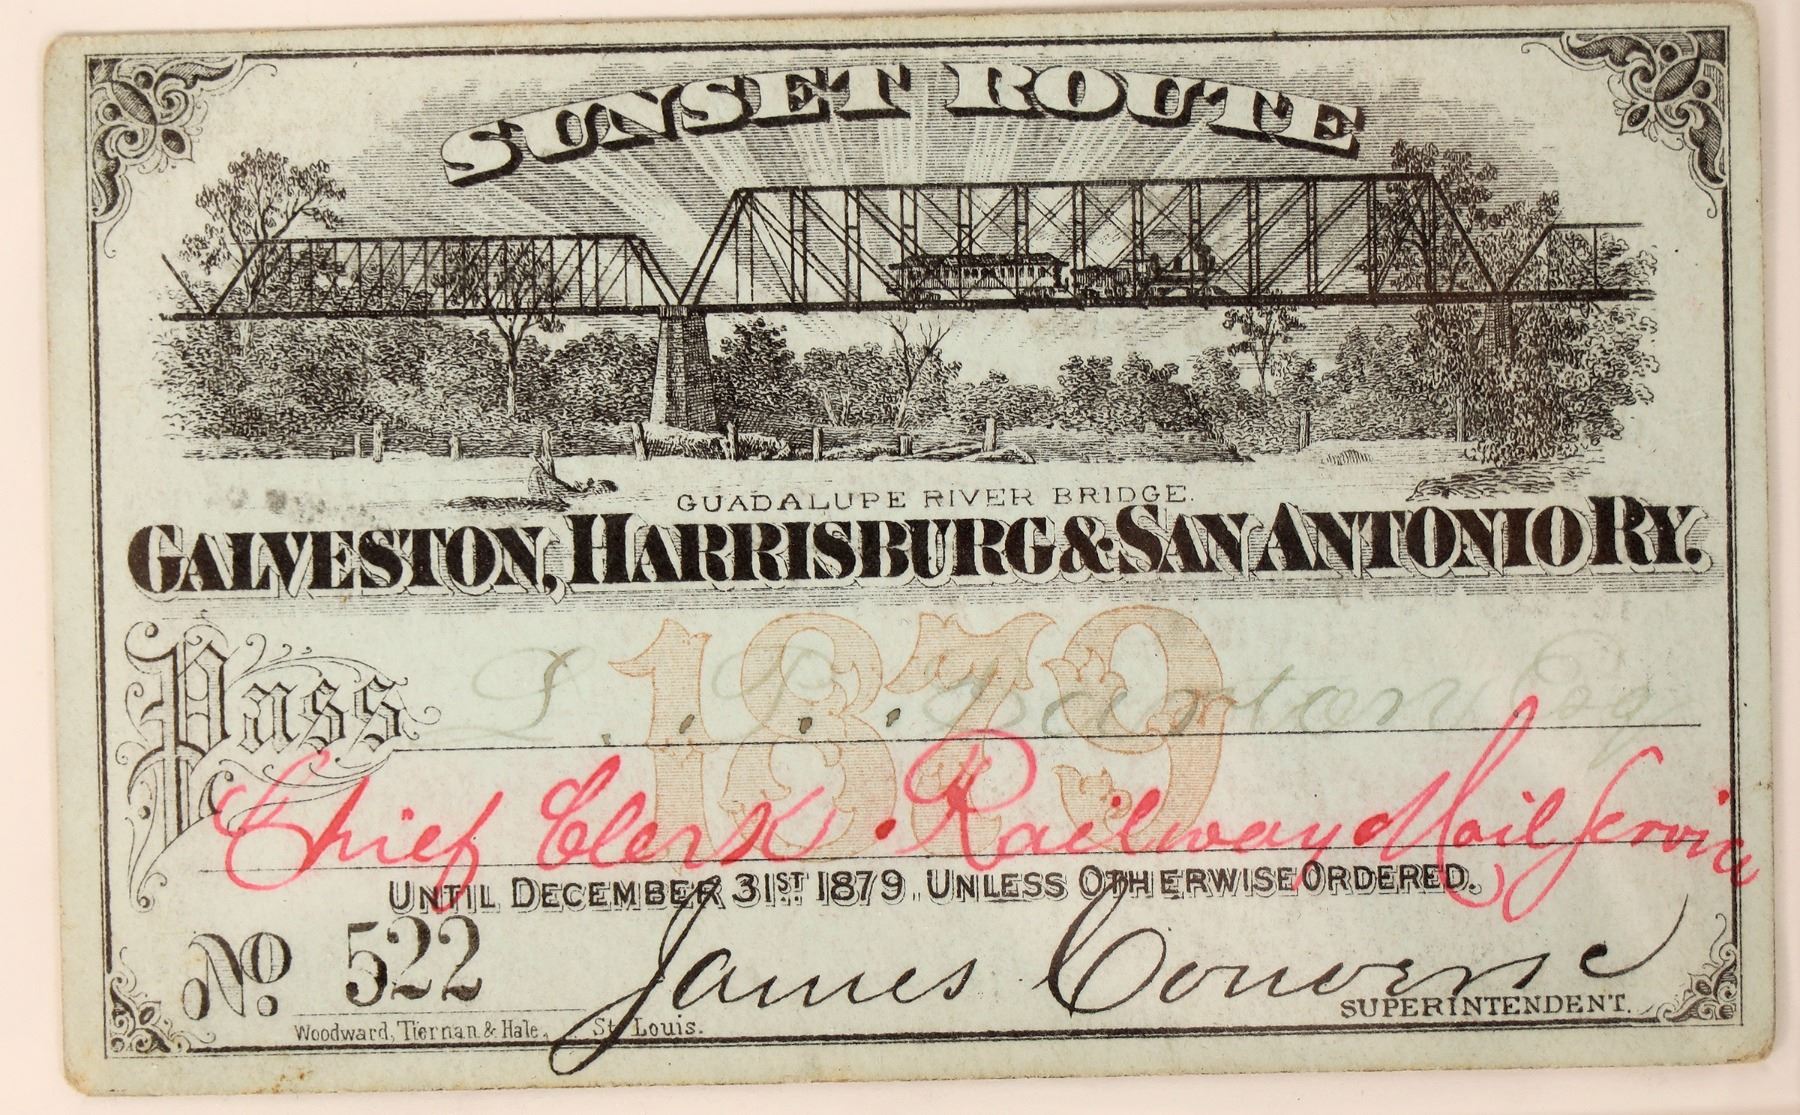 SUNSET ROUTE
GUADALUPE RIVER BRIDGE.
GALVESTON, HARRISBURG & SAN ANTONIO RY.
1879
Pass Barton Esq
Chief Clerk. Railway Mail Service
UNTIL DECEMBER 31ST 1879. UNLESS OTHERWISE ORDERED.
No. 522 James Converse
SUPERINTENDENT.
Woodward, Tiernan & Hale, St. Louis.